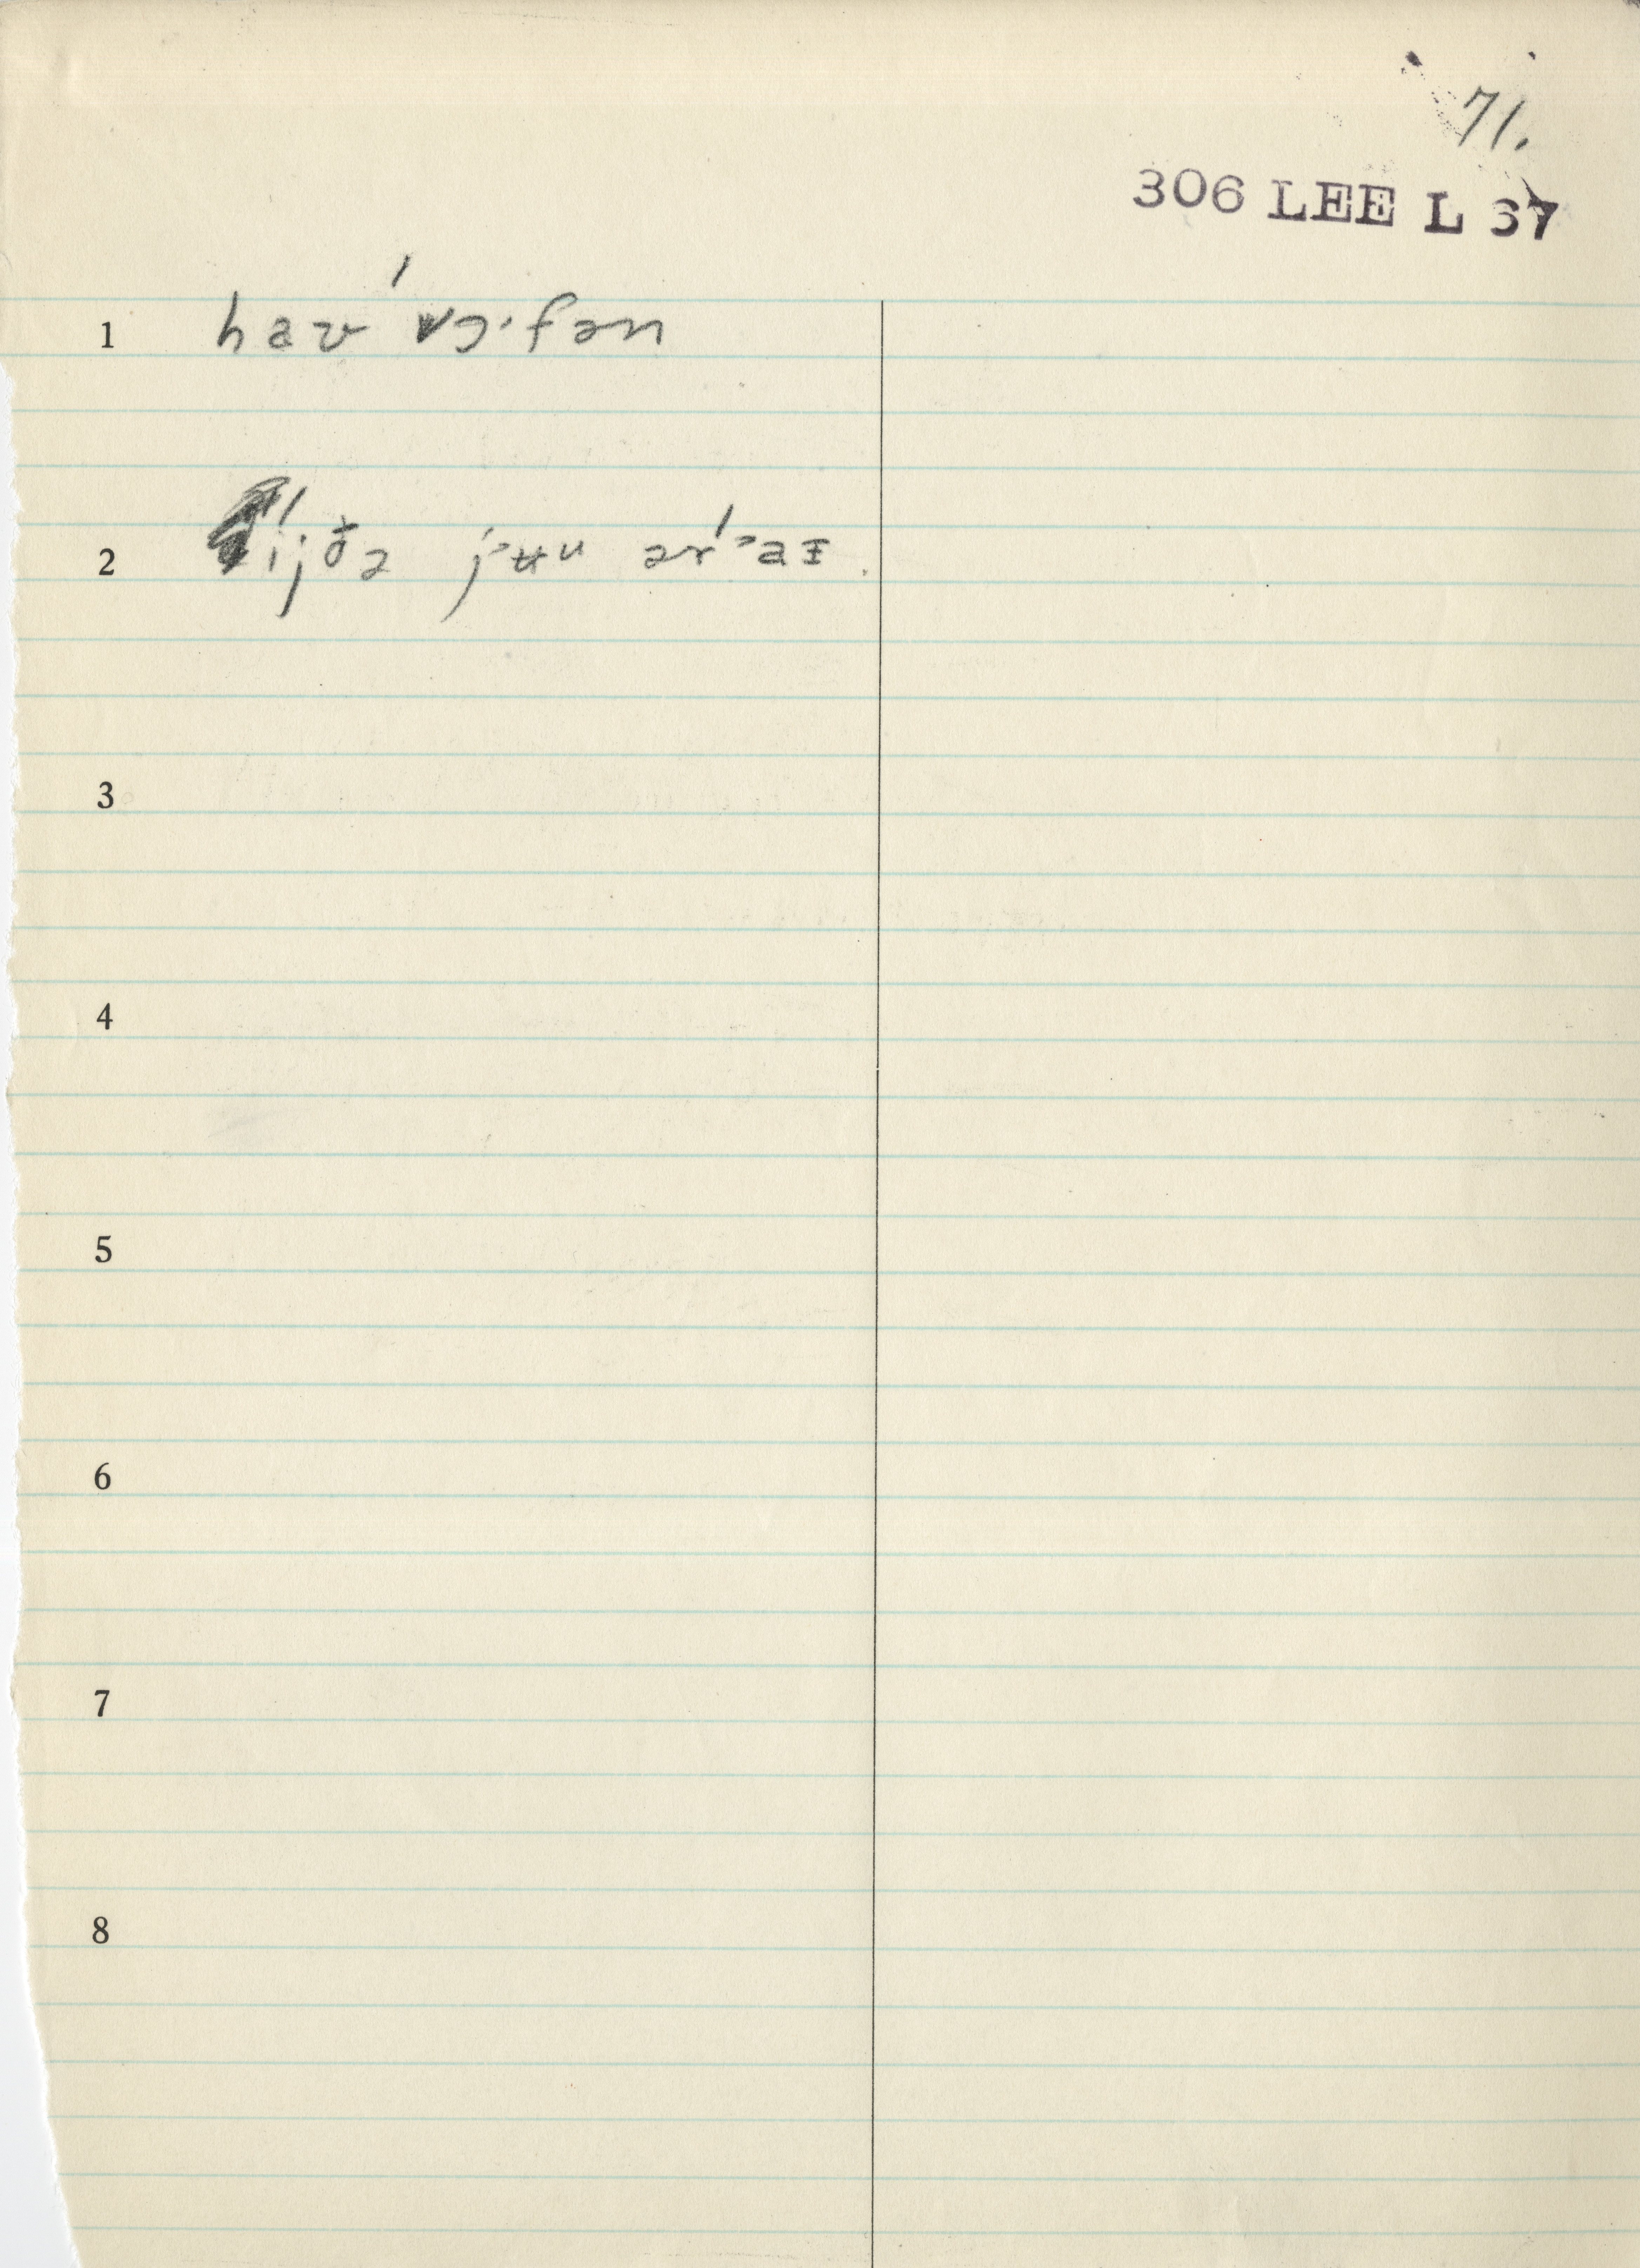 71.
306 LEE L 67
1 haʊ ˈɔ·fən
2 ˈijðə jʉu ər ˈaɪ
3
4
5
6
7
8